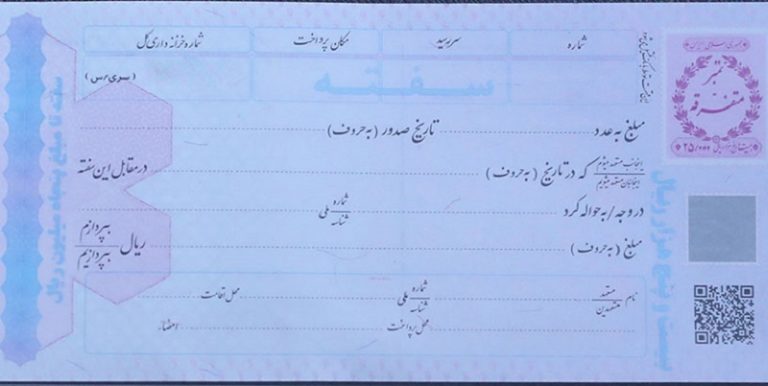 شماره سررسید مکان پرداخت شماره خزانه داری کل
سفته
(سری/س)
جمهوری اسلامی ایران
تمبر
متفرقه
۲۵/۰۰۰
مبلغ به عدد تاریخ صدور (به حروف)
اینجانب متعهد میشوم
اینجانبان متعهد میشویم
که در تاریخ (به حروف) در مقابل این سفته
در وجه / به حواله کرد شماره ملی شناسه
مبلغ (به حروف) ریال بپردازم بپردازیم
نام متعهد متعهدین شماره ملی شناسه محل اقامت
محل پرداخت امضاء
سفته تا مبلغ پنجاه میلیون ریال
بیست و پنج هزار ریال